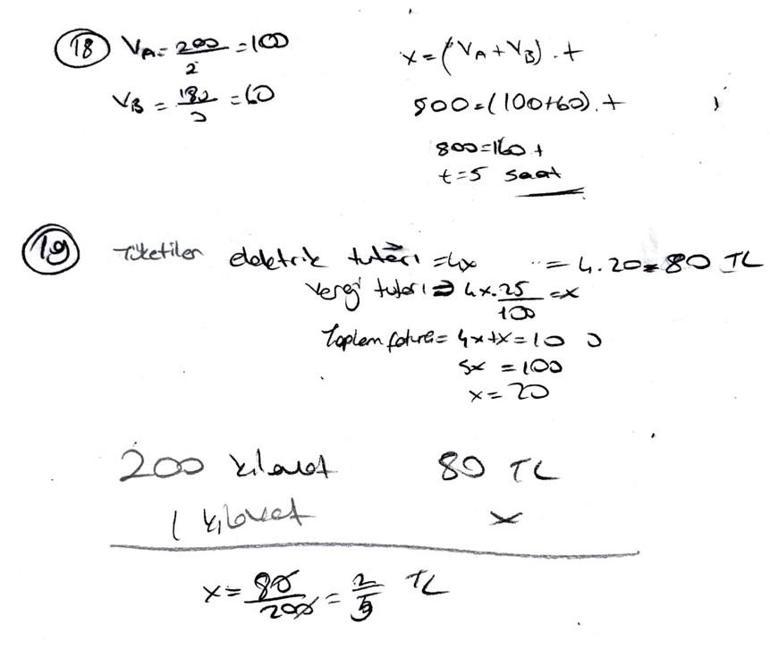 18 VA = 200/2 = 100
VB = 180/3 = 60
x = (VA + VB) . t
800 = (100+60) . t
800 = 160 t
t = 5 saat
19 Tüketilen elektrik tutarı = 4x = 4.20 = 80 TL
Vergi tutarı => 4x.25/100 = x
Toplam fatura = 4x+x = 100
5x = 100
x = 20
200 kilovat 80 TL
1 kilovat x
x = 80/200 = 2/5 TL